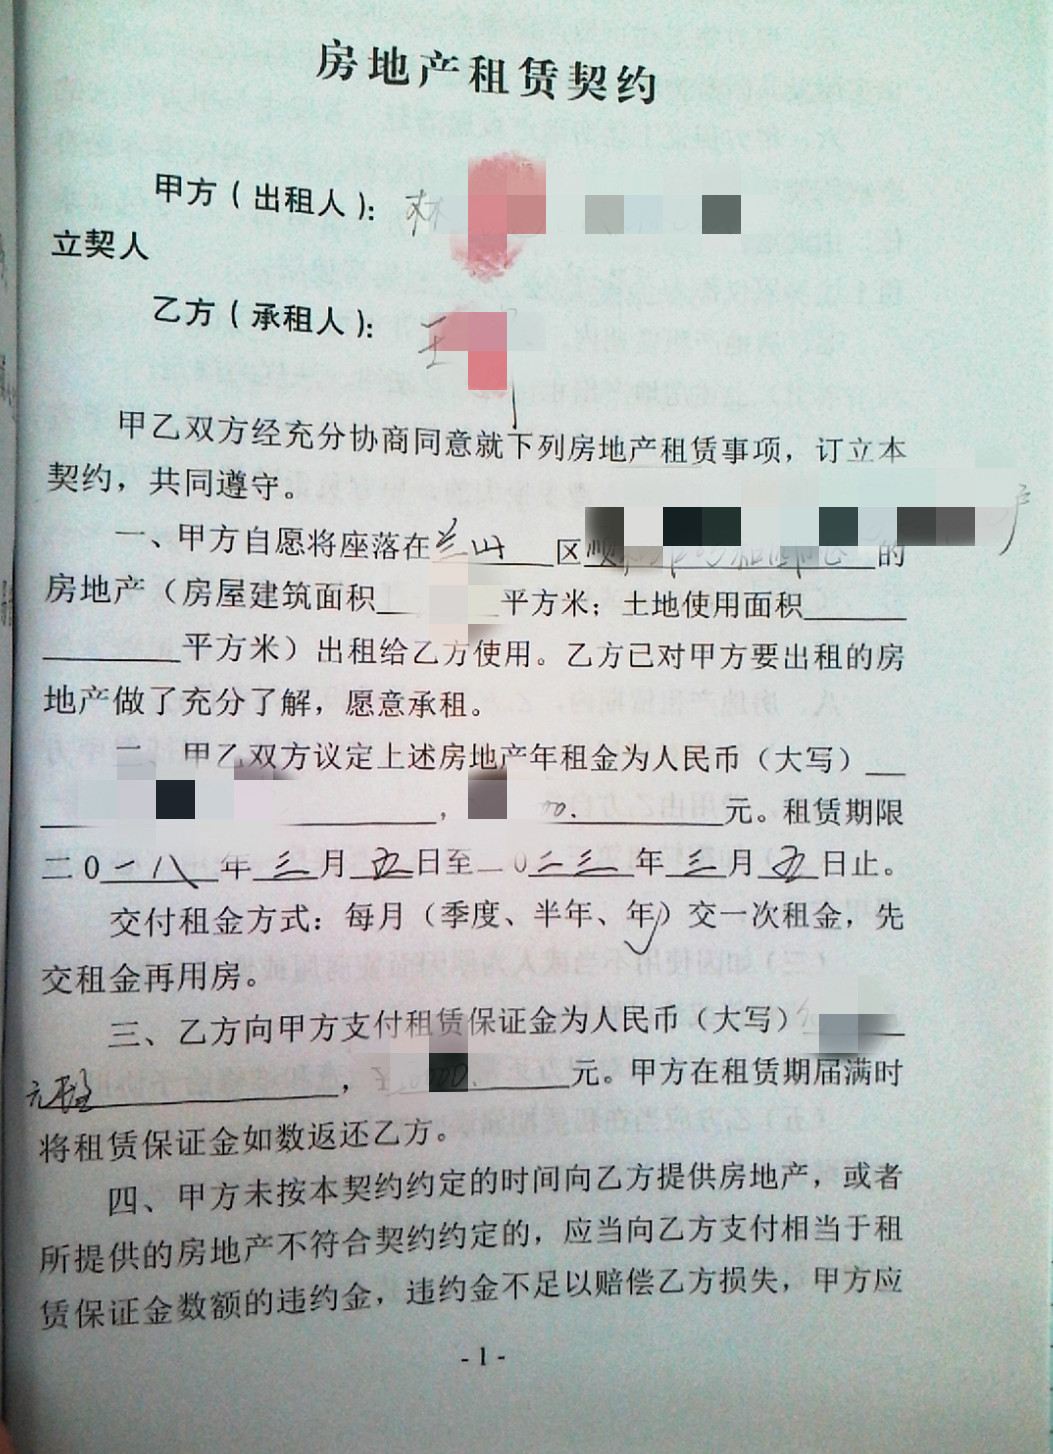 房地产租赁契约
甲方（出租人）：林
立契人
乙方（承租人）：王
甲乙双方经充分协商同意就下列房地产租赁事项，订立本
契约，共同遵守。
一、甲方自愿将座落在兰山区顺 的
房地产（房屋建筑面积 平方米；土地使用面积
平方米）出租给乙方使用。乙方已对甲方要出租的房
地产做了充分了解，愿意承租。
二、甲乙双方议定上述房地产年租金为人民币（大写）
， 00.元。租赁期限
二0一八年三月五日至二0二三年三月五日止。
交付租金方式：每月（季度、半年、年√）交一次租金，先
交租金再用房。
三、乙方向甲方支付租赁保证金为人民币（大写）
元整，¥ 00.元。甲方在租赁期届满时
将租赁保证金如数返还乙方。
四、甲方未按本契约约定的时间向乙方提供房地产，或者
所提供的房地产不符合契约约定的，应当向乙方支付相当于租
赁保证金数额的违约金，违约金不足以赔偿乙方损失，甲方应
- 1 -